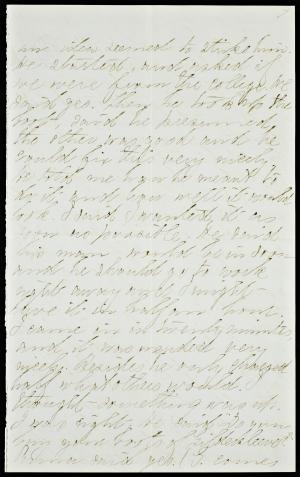 an idea seemed to strike him.
he started, and asked if
we were from the college. We
said yes. Then he took up the
boot, said he presumed
the other was good and he
could fix this very nicely
he told me how he meant to
do it, and how well it would
look. I said I wanted it as
soon as possible. He said
his man would be in soon
and he should go to work
right away and I might
have it in half an hour.
I came in in twenty minutes
and it was mended very
nicely. Besides he only charged
half what others would. I
thought something was up.
I was right. he said "do you
buy your boots of
Anna said yes.